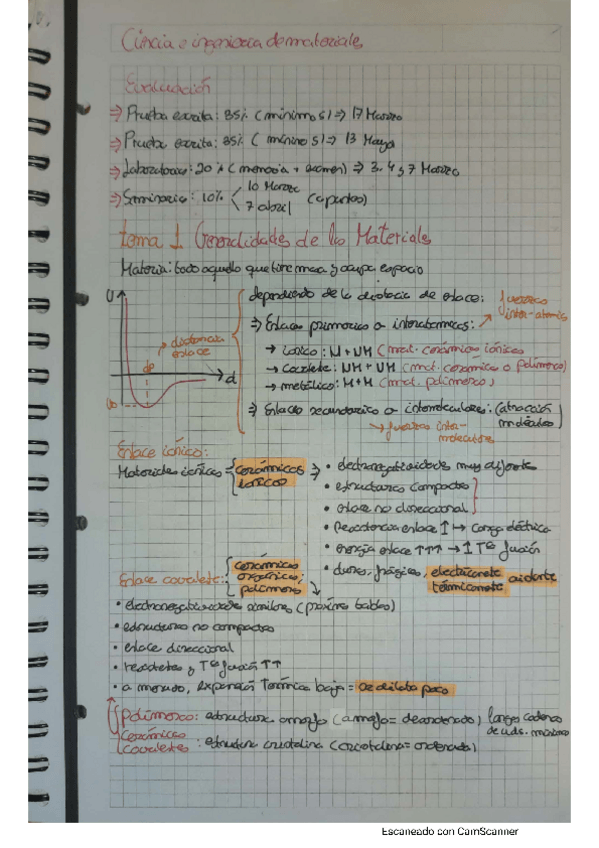 Ciencia e ingenieria de materiales
Evaluación
⇒ Prueba escrita: 35% (mínimo 5) ⇒ 17 Marzo
⇒ Prueba escrita: 35% (mínimo 5) ⇒ 13 Mayo
⇒ Laboratorios: 20% (memoria + examen) ⇒ 3, 4 y 7 Marzo
⇒ Seminarios: 10% < 10 Marzo
7 abril (apuntes)
tema 1 Generalidades de los Materiales
Materia: todo aquello que tiene masa y ocupa espacio
U
dependiendo de la distancia de enlace:
fuerzas
inter-atomic
⇒ Enlaces primarios o interatomicos:
→ distancia
enlace
→ Ionico: M + NM (mat. cerámicos iónicos
→ Covalente: NM + NM (mat. ceramicos o polimeros)
do
→ d
→ metálico: M+M (mat. polimeros)
Uo
⇒ Enlaces secundarios o intermoleculares: (atracción
moléculas)
→ fuerzas inter-
moleculares
Enlace iónico:
Materiales iónicos = cerámicos
iónicos ⇒
• electronegatividades muy diferente
• estructuras compactas
• enlace no direccional
• Resistencia enlace ↑ → carga eléctrica
• energia enlace ↑↑↑ → ↑ Tª fusión
• duros, frágiles, electricamente
térmicamente aislante
Enlace covalente: cerámicos
orgánicos,
polimeros
• electronegatividades similares (próximo tablas)
• estructuras no compactas
• enlace direccional
• resistentes y Tª fusión ↑↑
• a menudo, expansión térmica baja = se dilata poco
polimeros: estructura amorfa (amorfo = desordenado) largas cadenas
de uds.
Cerámicos
covalentes: estructura cristalina (cristalina = ordenada)
Escaneado con CamScanner